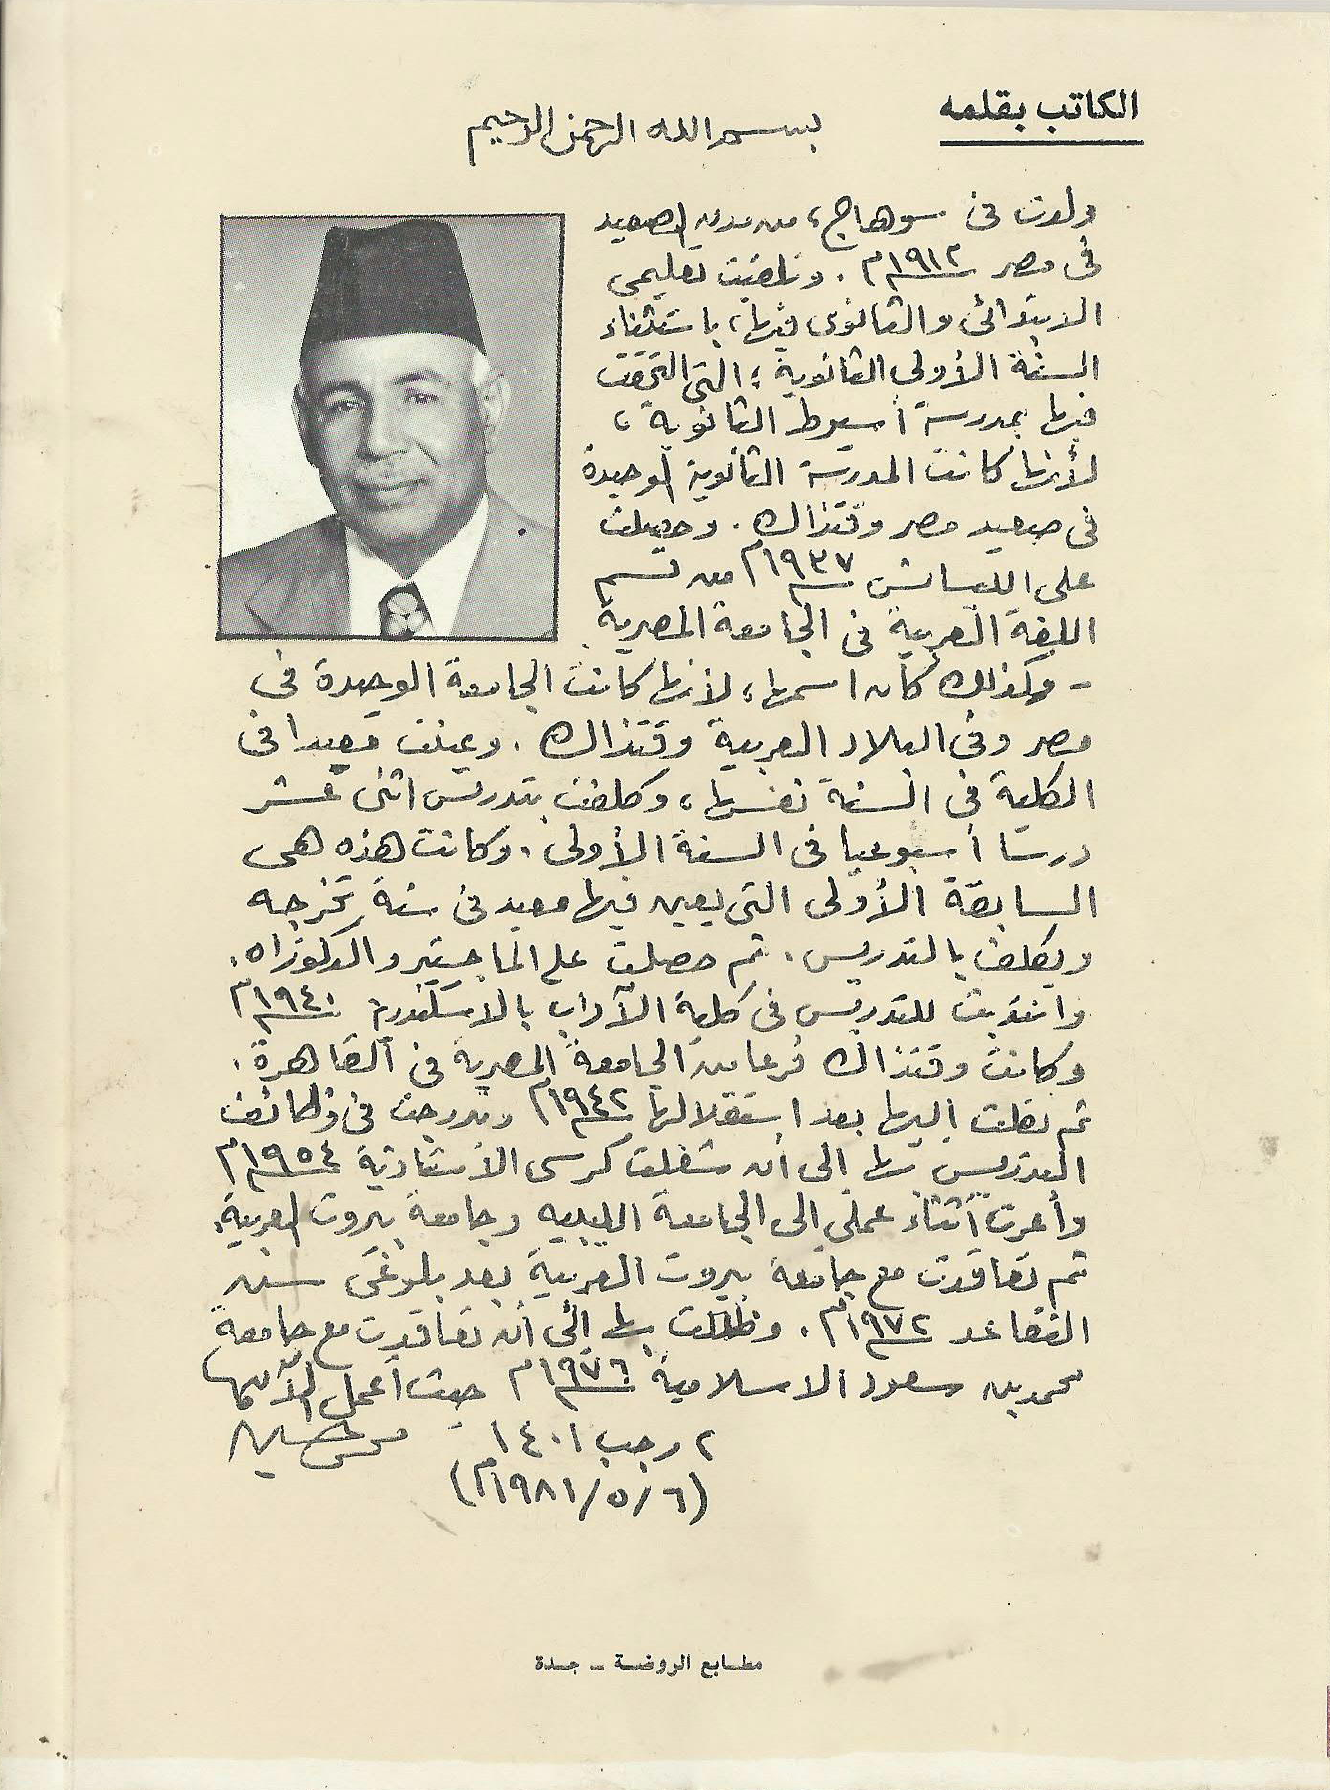 الكاتب بقلمه
بسم الله الرحمن الرحيم
ولدت في سوهاج، من مدن الصعيد
في مصر ١٩١٢م. وتلقيت تعليمي
الابتدائي والثانوي فيها، باستثناء
السنة الأولى الثانوية؛ التي التحقت
فيها بمدرسة أسيوط الثانوية،
لأنها كانت المدرسة الثانوية الوحيدة
في صعيد مصر وقتذاك. وحصلت
على الليسانس ١٩٣٧م من قسم
اللغة العربية في الجامعة المصرية
- وكذلك كان اسمها، لأنها كانت الجامعة الوحيدة في
مصر وفي البلاد العربية وقتذاك. وعينت معيدا في
الكلية في السنة نفسها، وكلفت بتدريس اثنى عشر
درسا أسبوعيا في السنة الأولى. وكانت هذه هي
السابقة الأولى التي يعين فيها معيد في سنة تخرجه
ويكلف بالتدريس. ثم حصلت على الماجستير والدكتوراه.
وانتدبت للتدريس في كلية الآداب بالاسكندرية ١٩٤٠م
وكانت وقتذاك فرعا من الجامعة المصرية في القاهرة.
ثم نقلت إليها بعد استقلالها ١٩٤٢م وتدرجت في وظائف
التدريس بها إلى أن شغلت كرسي الأستاذية ١٩٥٤م
وأعرت أثناء عملي إلى الجامعة الليبية وجامعة بيروت العربية.
ثم تعاقدت مع جامعة بيروت العربية بعد بلوغي سن
التقاعد ١٩٧٢م. وظللت بها إلى أن تعاقدت مع جامعة
محمد بن سعود الاسلامية ١٩٧٦م حيث أعمل الآن بها
٢ رجب ١٤٠١
محمد حسين
(٦/٥/١٩٨١م)
مطابع الروضة - جدة